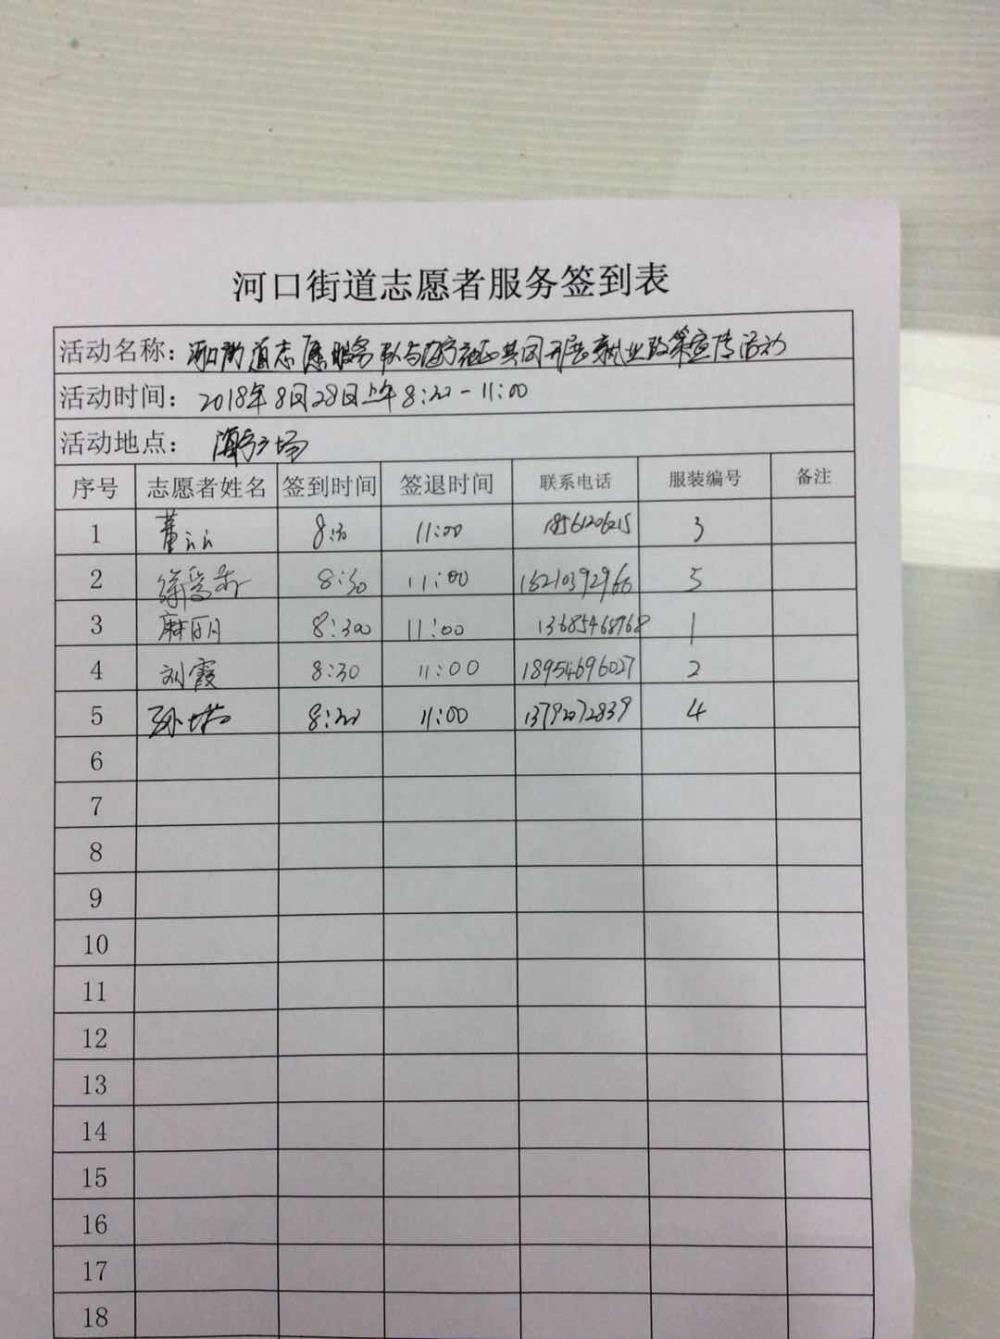 河口街道志愿者服务签到表
活动名称：河口街道志愿服务队与海宁社区共同开展就业政策宣传活动
活动时间：2018年8月28日上午8:30-11:00
活动地点：海宁广场
序号 志愿者姓名 签到时间 签退时间 联系电话 服装编号 备注
1 董云云 8:30 11:00 3
2 8:30 11:00 15210392966 5
3 麻丽月 8:300 11:00 13685468768 1
4 刘霞 8:30 11:00 18954696027 2
5 8:30 11:00 13792072839 4
6
7
8
9
10
11
12
13
14
15
16
17
18